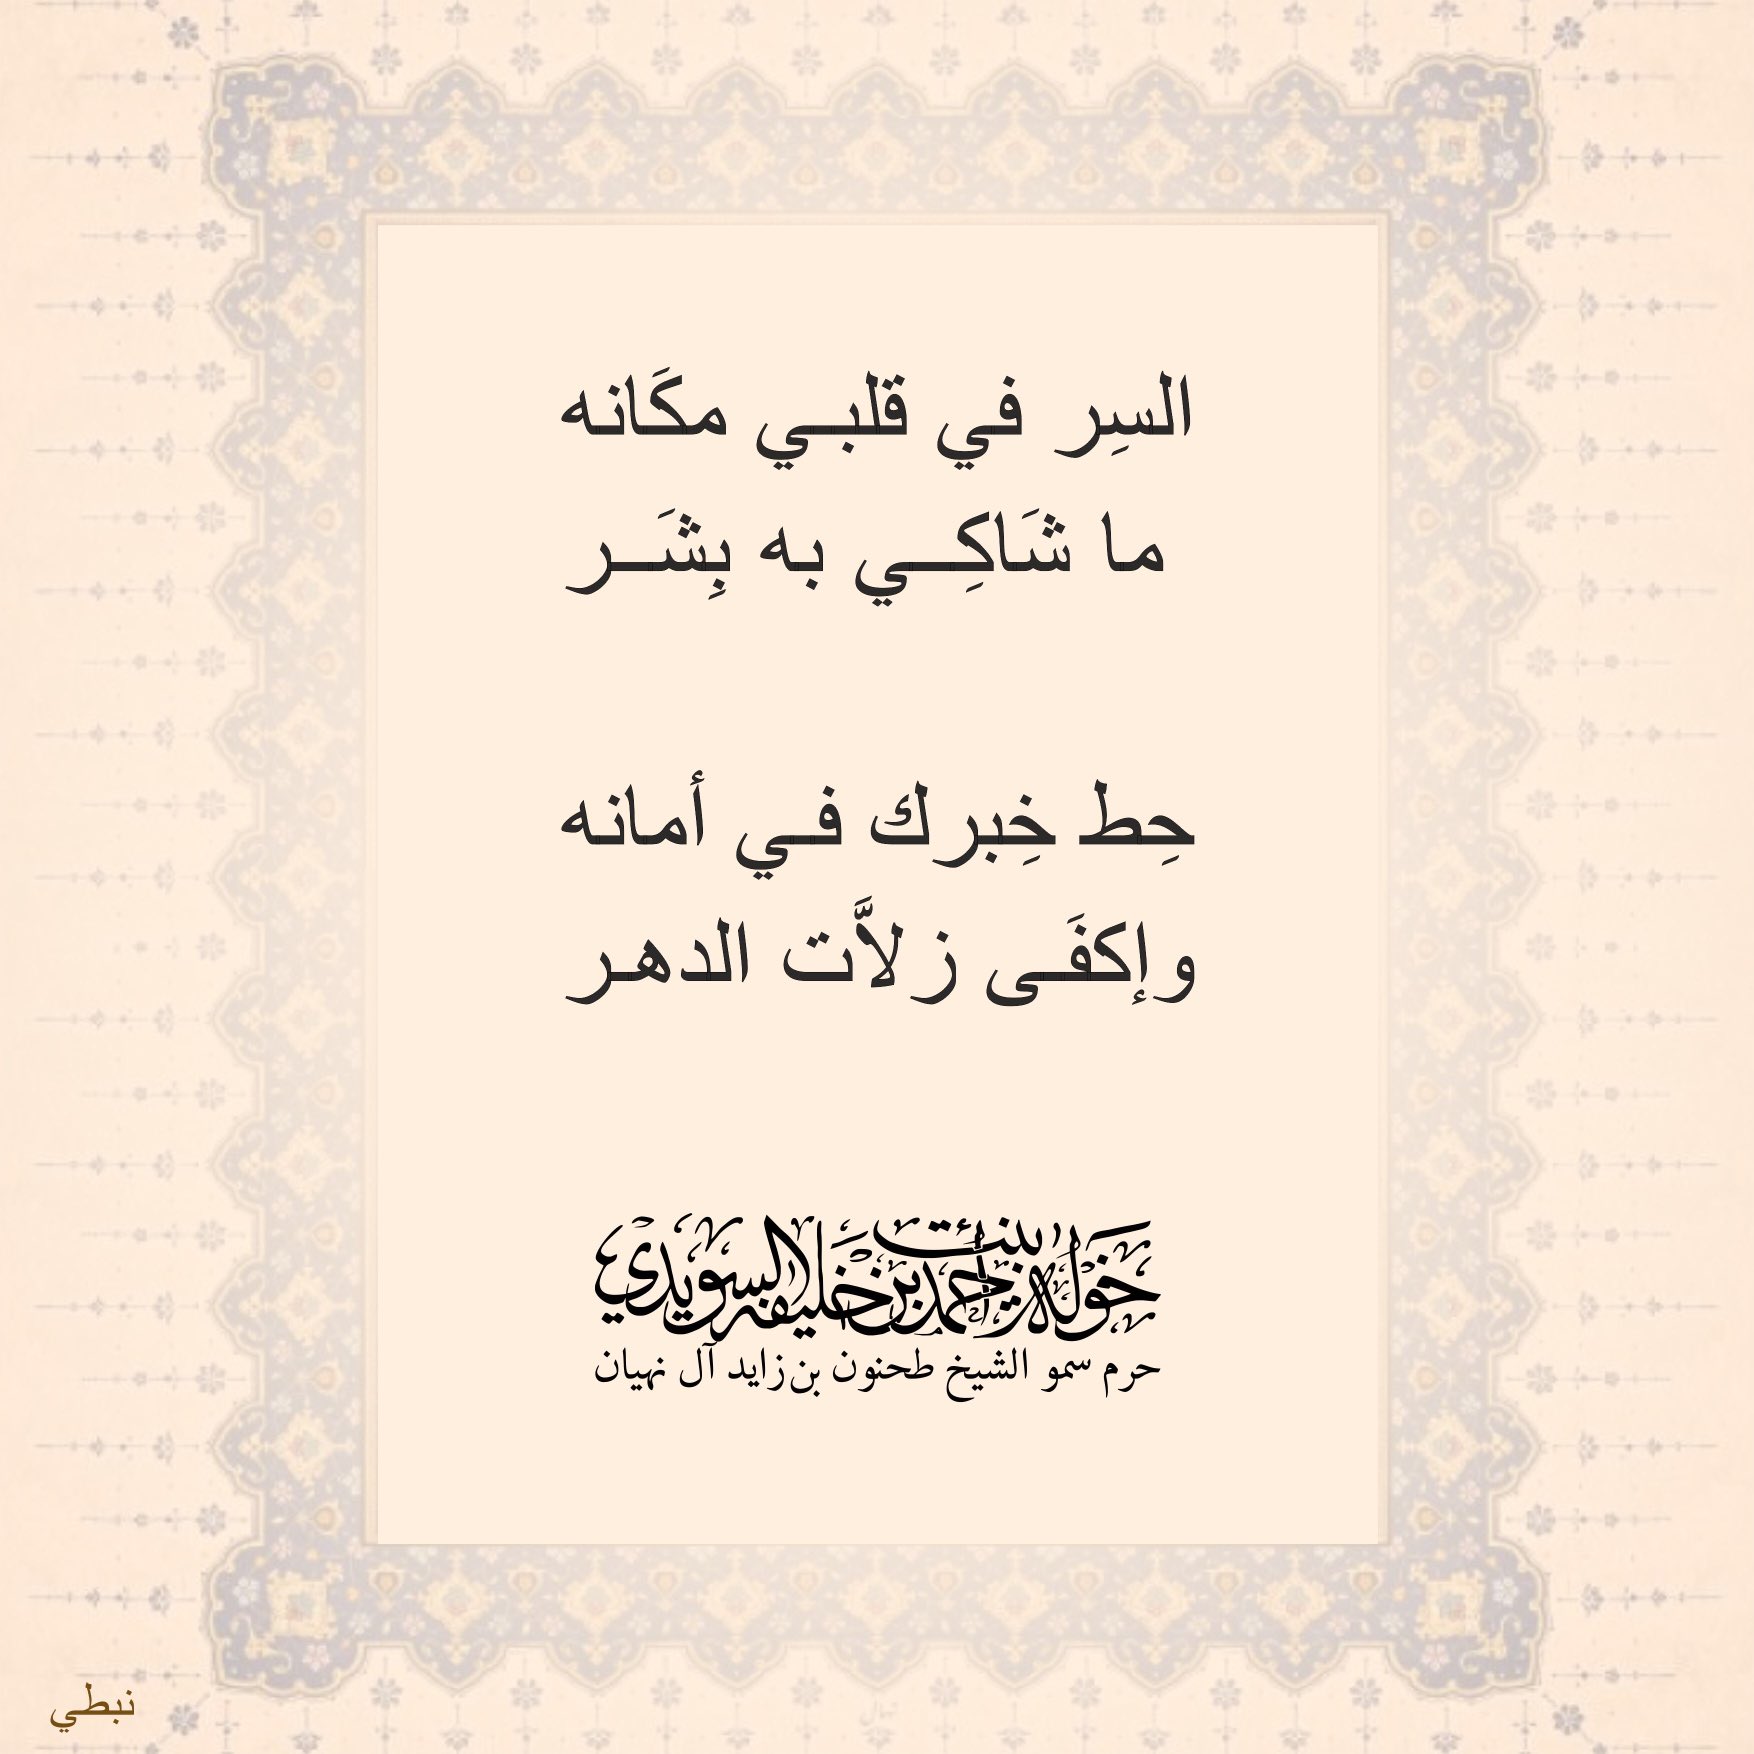 السِر في قلبـي مكَانه
ما شَاكِـي به بِشَـر
حِط خِبرك فـي أمانه
وإكفَـى زلاَّت الدهـر
خولة بنت أحمد بن خليفة السويدي
حرم سمو الشيخ طحنون بن زايد آل نهيان
نبطي